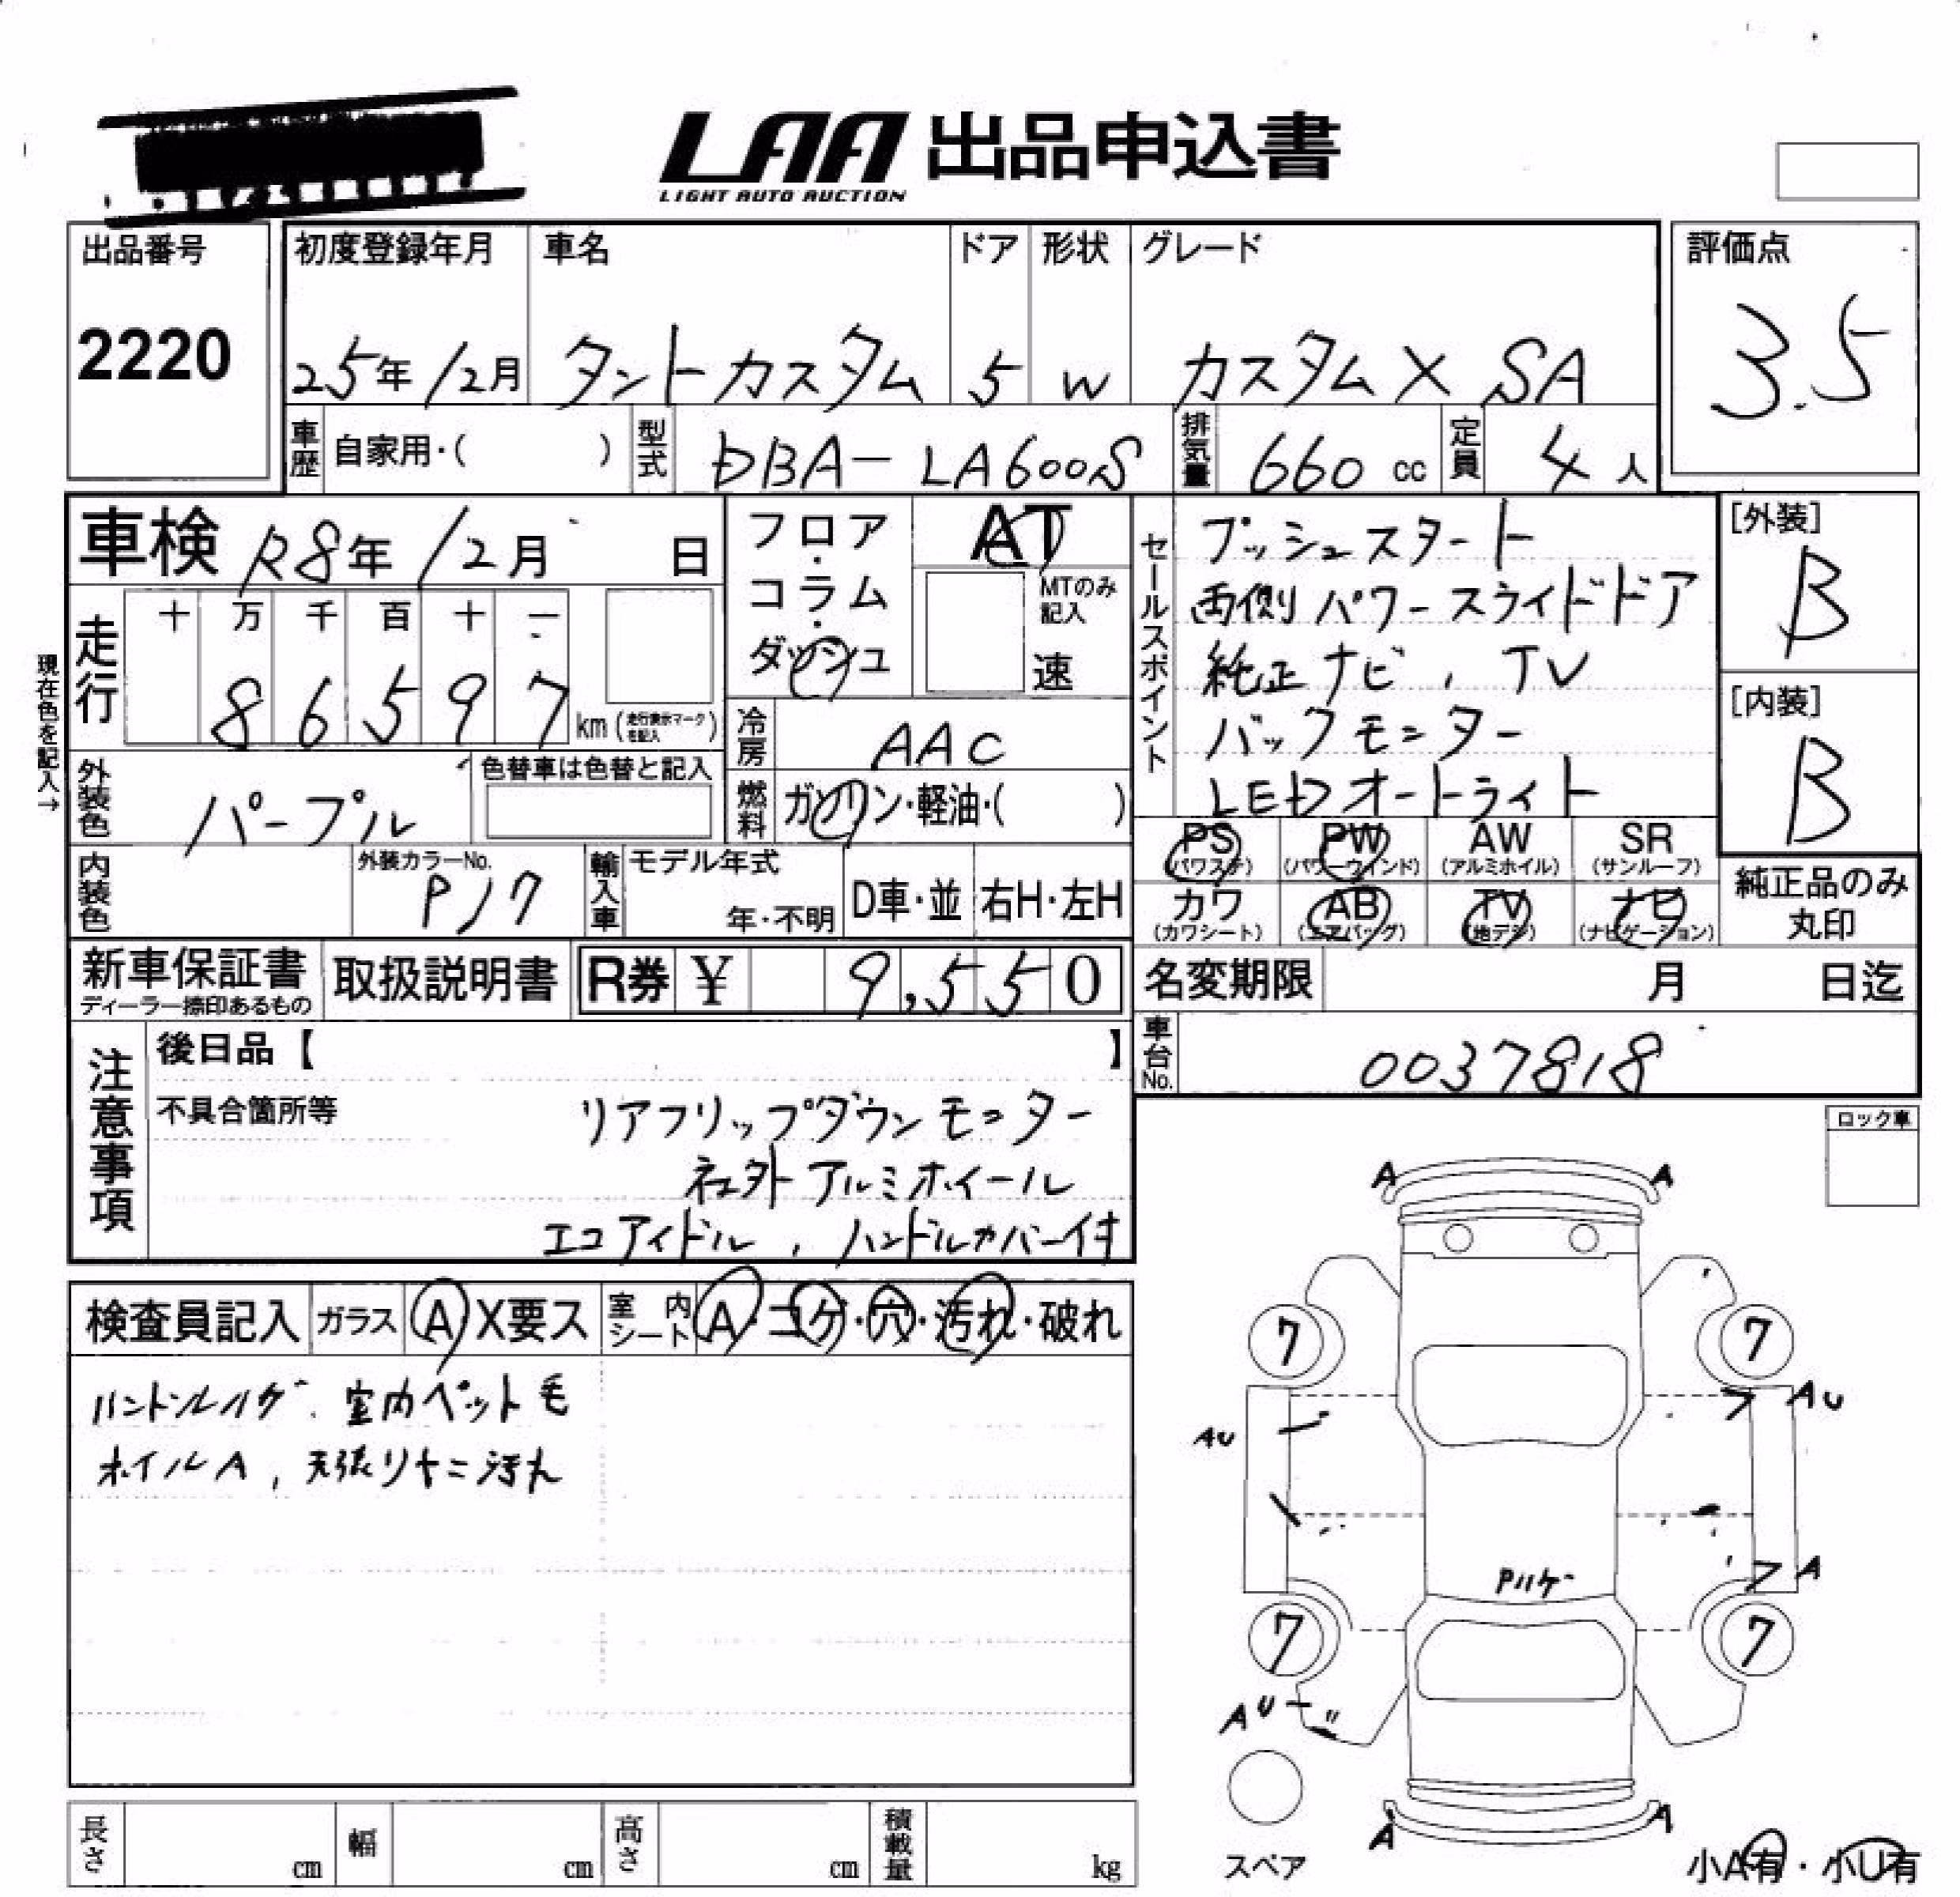 LAA 出品申込書
LIGHT AUTO AUCTION
出品番号
2220
初度登録年月 車名 ドア 形状 グレード
25年12月 タントカスタム 5 W カスタムX SA
評価点
3.5
車歴 自家用・( ) 型式 DBA-LA600S 排気量 660 cc 定員 4人
車検 R8年12月 日
走行 十 万 千 百 十 一
86597 km (走行表示マークを記入)
現在色を記入→
フロア・コラム・ダッシュ
AT
MTのみ記入
速
冷房 AAC
燃料 ガソリン・軽油・( )
外装色 パープル
色替車は色替と記入
内装色
外装カラーNo.
輸入車 モデル年式
年・不明 D車・並 右H・左H
セールスポイント
プッシュスタート
両側パワースライドドア
純正ナビ, TV
バックモニター
LEDオートライト
[外装]
B
[内装]
B
PS PW AW SR
(パワステ) (パワーウィンド) (アルミホイル) (サンルーフ)
カワ AB TV ナビ
(カワシート) (エアバッグ) (地デジ) (ナビゲーション)
純正品のみ
丸印
新車保証書
ディーラー捺印あるもの
取扱説明書 R券 ¥ 9,550
名変期限 月 日迄
車台No. 0037818
注意事項
後日品【 】
不具合箇所等
リアフリップダウンモニター
社外アルミホイール
エコアイドル, ハンドルカバー付
ロック車
検査員記入 ガラス A・X要ス 室内シート A・コゲ・穴・汚れ・破れ
ハンドルハゲ. 室内ペット毛
ホイルA, 天張りヤニ汚れ
A A
7 7
AU AU
Pハゲ
A
7 7
AU
A A
スペア
小A有・小U有
長さ cm 幅 cm 高さ cm 積載量 kg